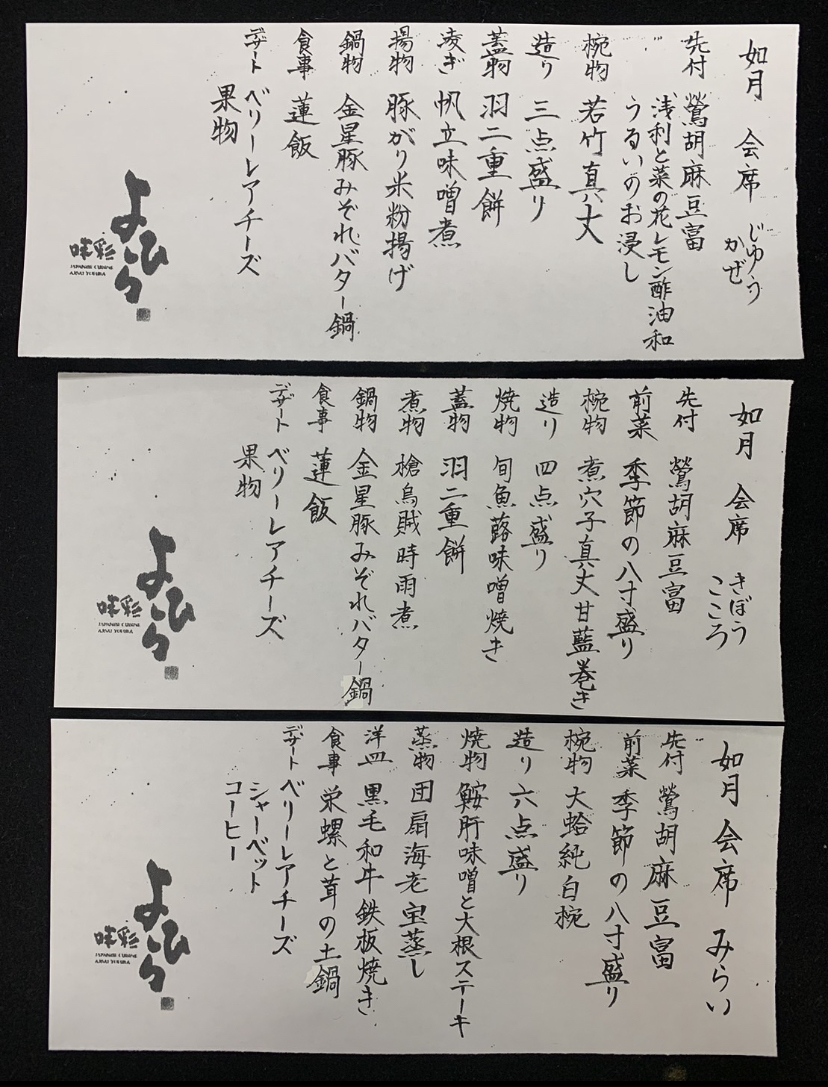 如月 会席 じゆう
かぜ
先付 鶯胡麻豆富
〃 浅利と菜の花レモン酢油和
うるいのお浸し
椀物 若竹真丈
造り 三点盛り
蓋物 羽二重餅
凌ぎ 帆立味噌煮
揚物 豚がり米粉揚げ
鍋物 金星豚みぞれバター鍋
食事 蓮飯
デザート ベリーレアチーズ
果物
よひら
味彩
JAPANESE CUISINE
AJISAI YOHIRA
如月 会席 きぼう
こころ
先付 鶯胡麻豆富
前菜 季節の八寸盛り
椀物 煮穴子真丈甘藍巻き
造り 四点盛り
焼物 旬魚蕗味噌焼き
蓋物 羽二重餅
煮物 槍烏賊時雨煮
鍋物 金星豚みぞれバター鍋
食事 蓮飯
デザート ベリーレアチーズ
果物
よひら
味彩
JAPANESE CUISINE
AJISAI YOHIRA
如月 会席 みらい
先付 鶯胡麻豆富
前菜 季節の八寸盛り
椀物 大蛤純白椀
造り 六点盛り
焼物 鮟肝味噌と大根ステーキ
蒸物 団扇海老宝蒸し
洋皿 黒毛和牛鉄板焼き
食事 栄螺と茸の土鍋
デザート ベリーレアチーズ
シャーベット
コーヒー
よひら
味彩
JAPANESE CUISINE
AJISAI YOHIRA